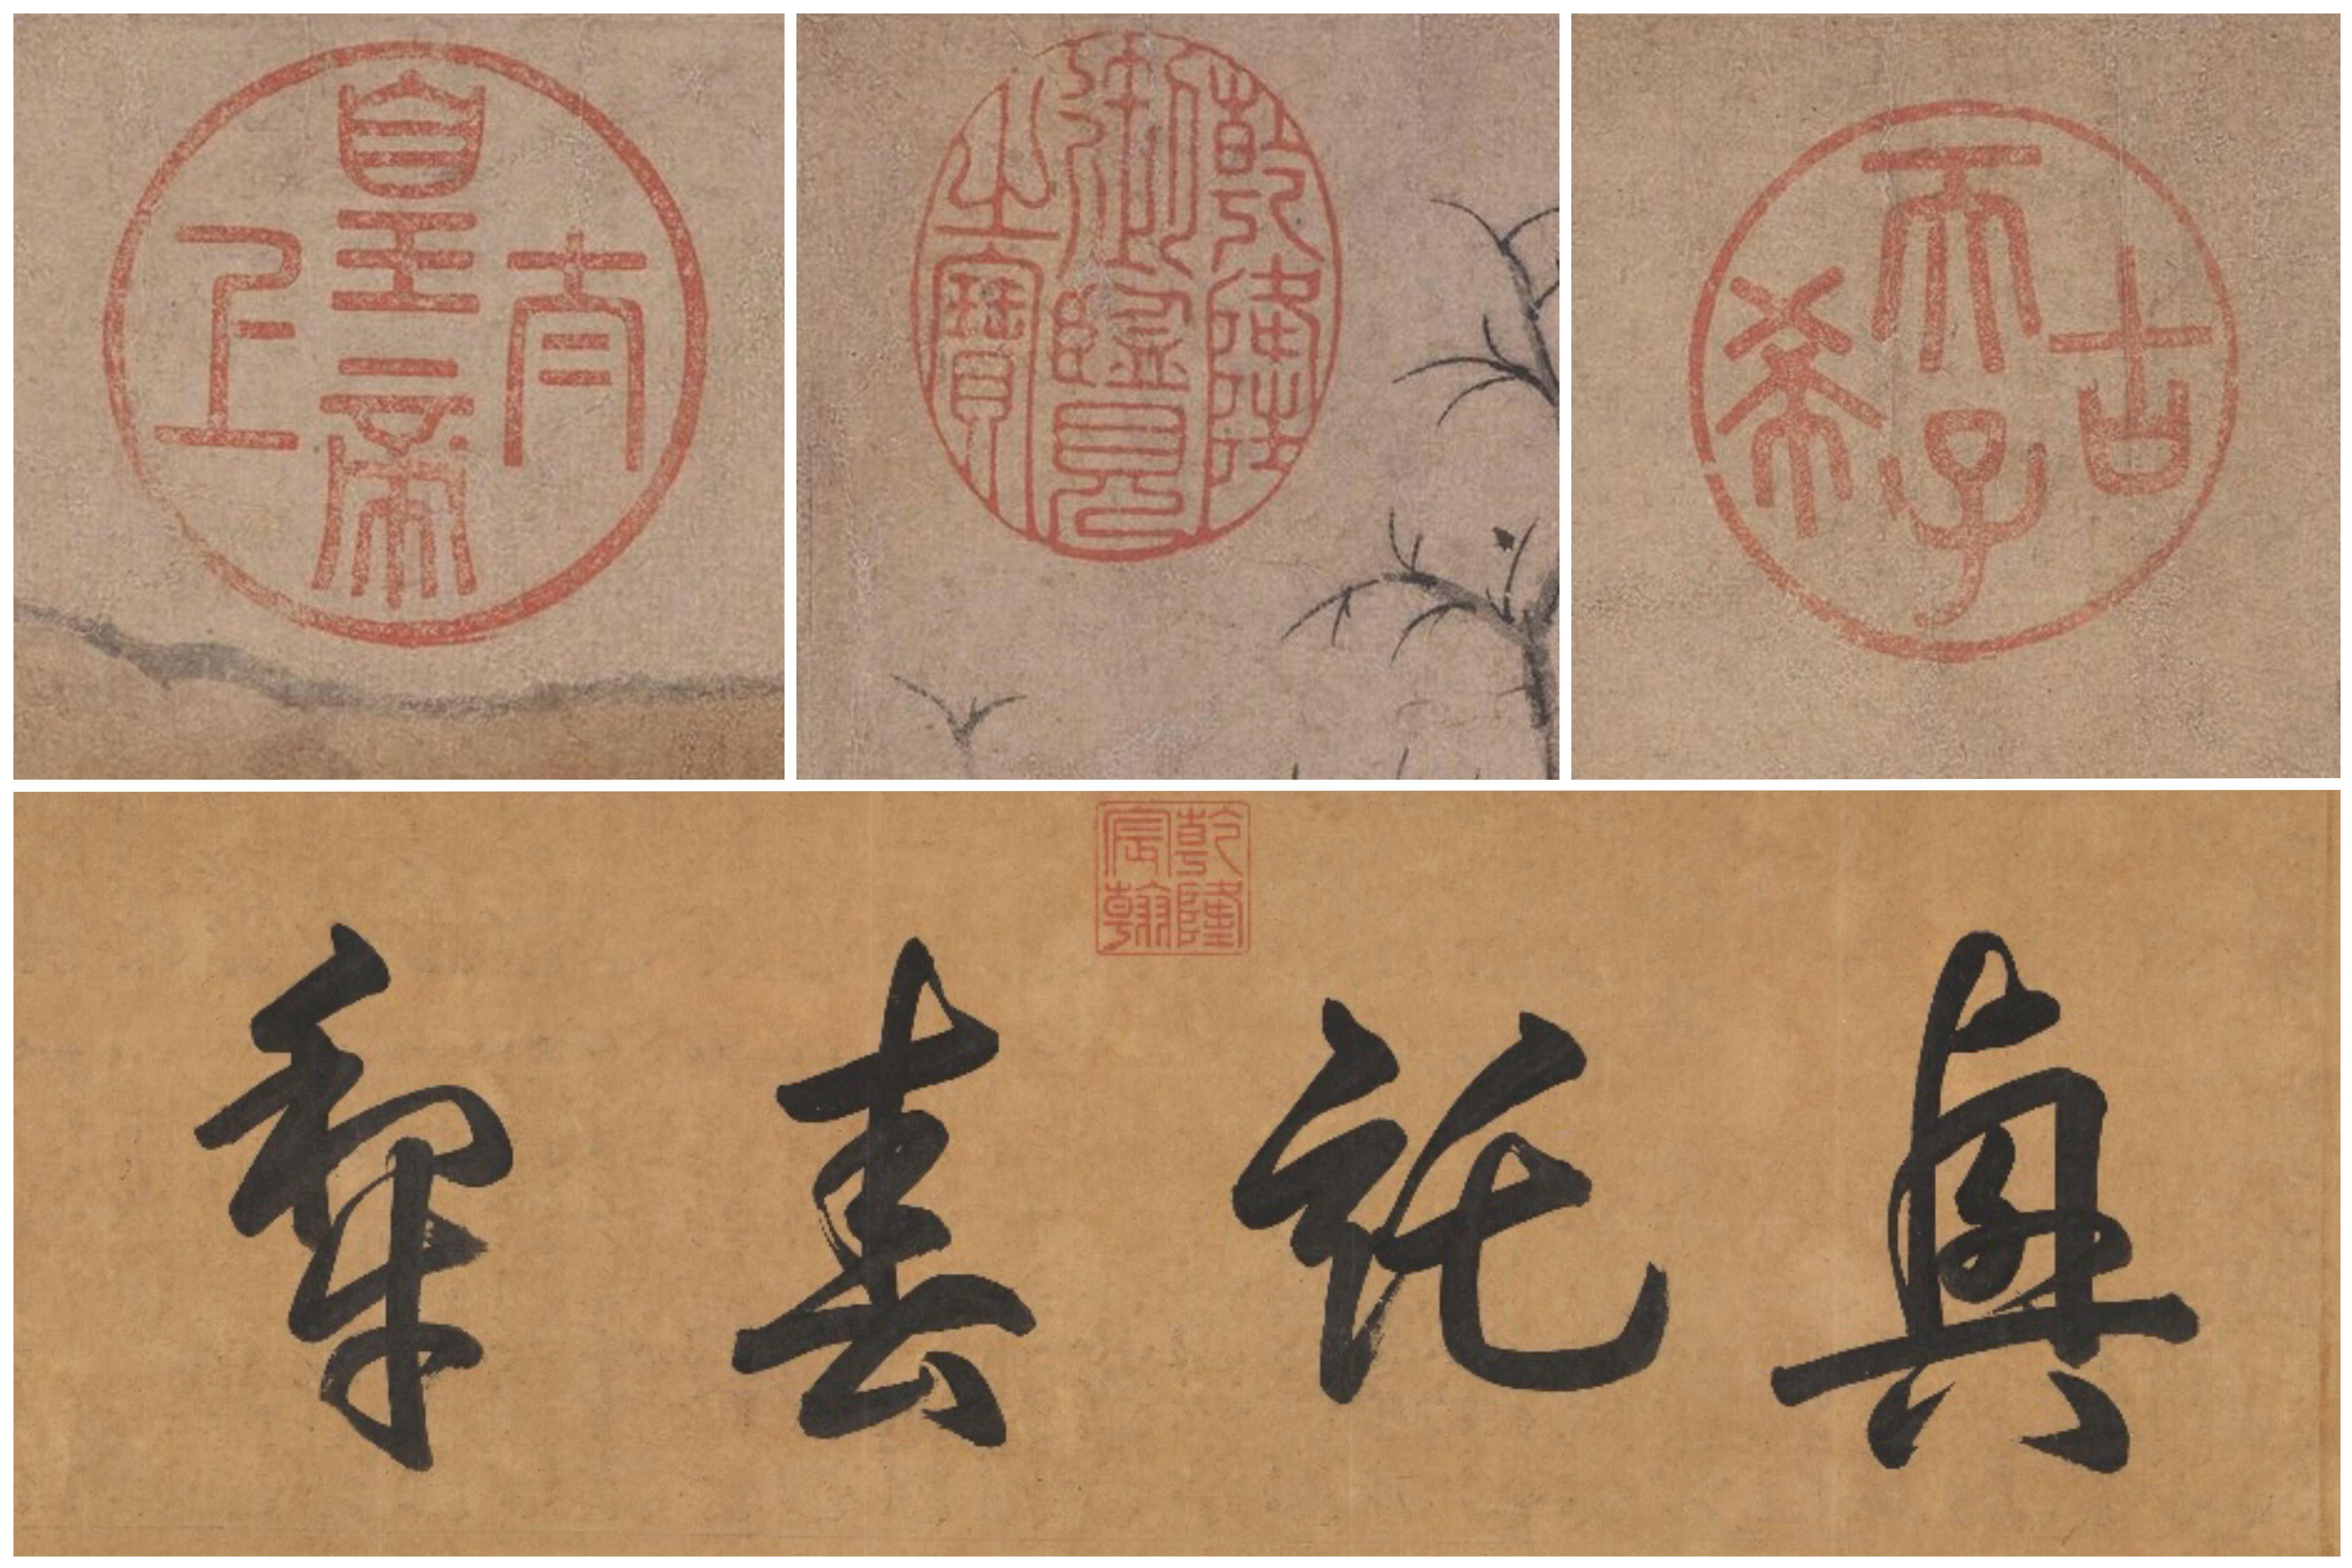 太上皇帝
乾隆御覽之寶
古希天子
乾隆宸翰
興託春犂